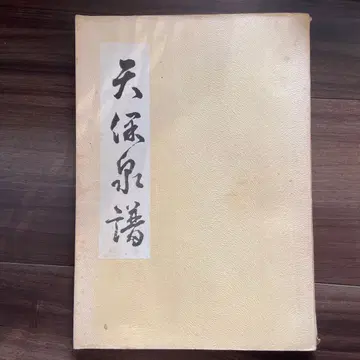 天保泉譜